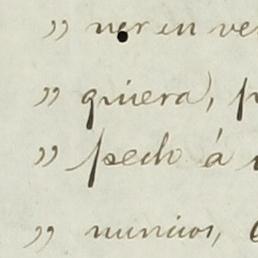 ” ner en ve
” quiera, p
” pecho á
” nuncios,